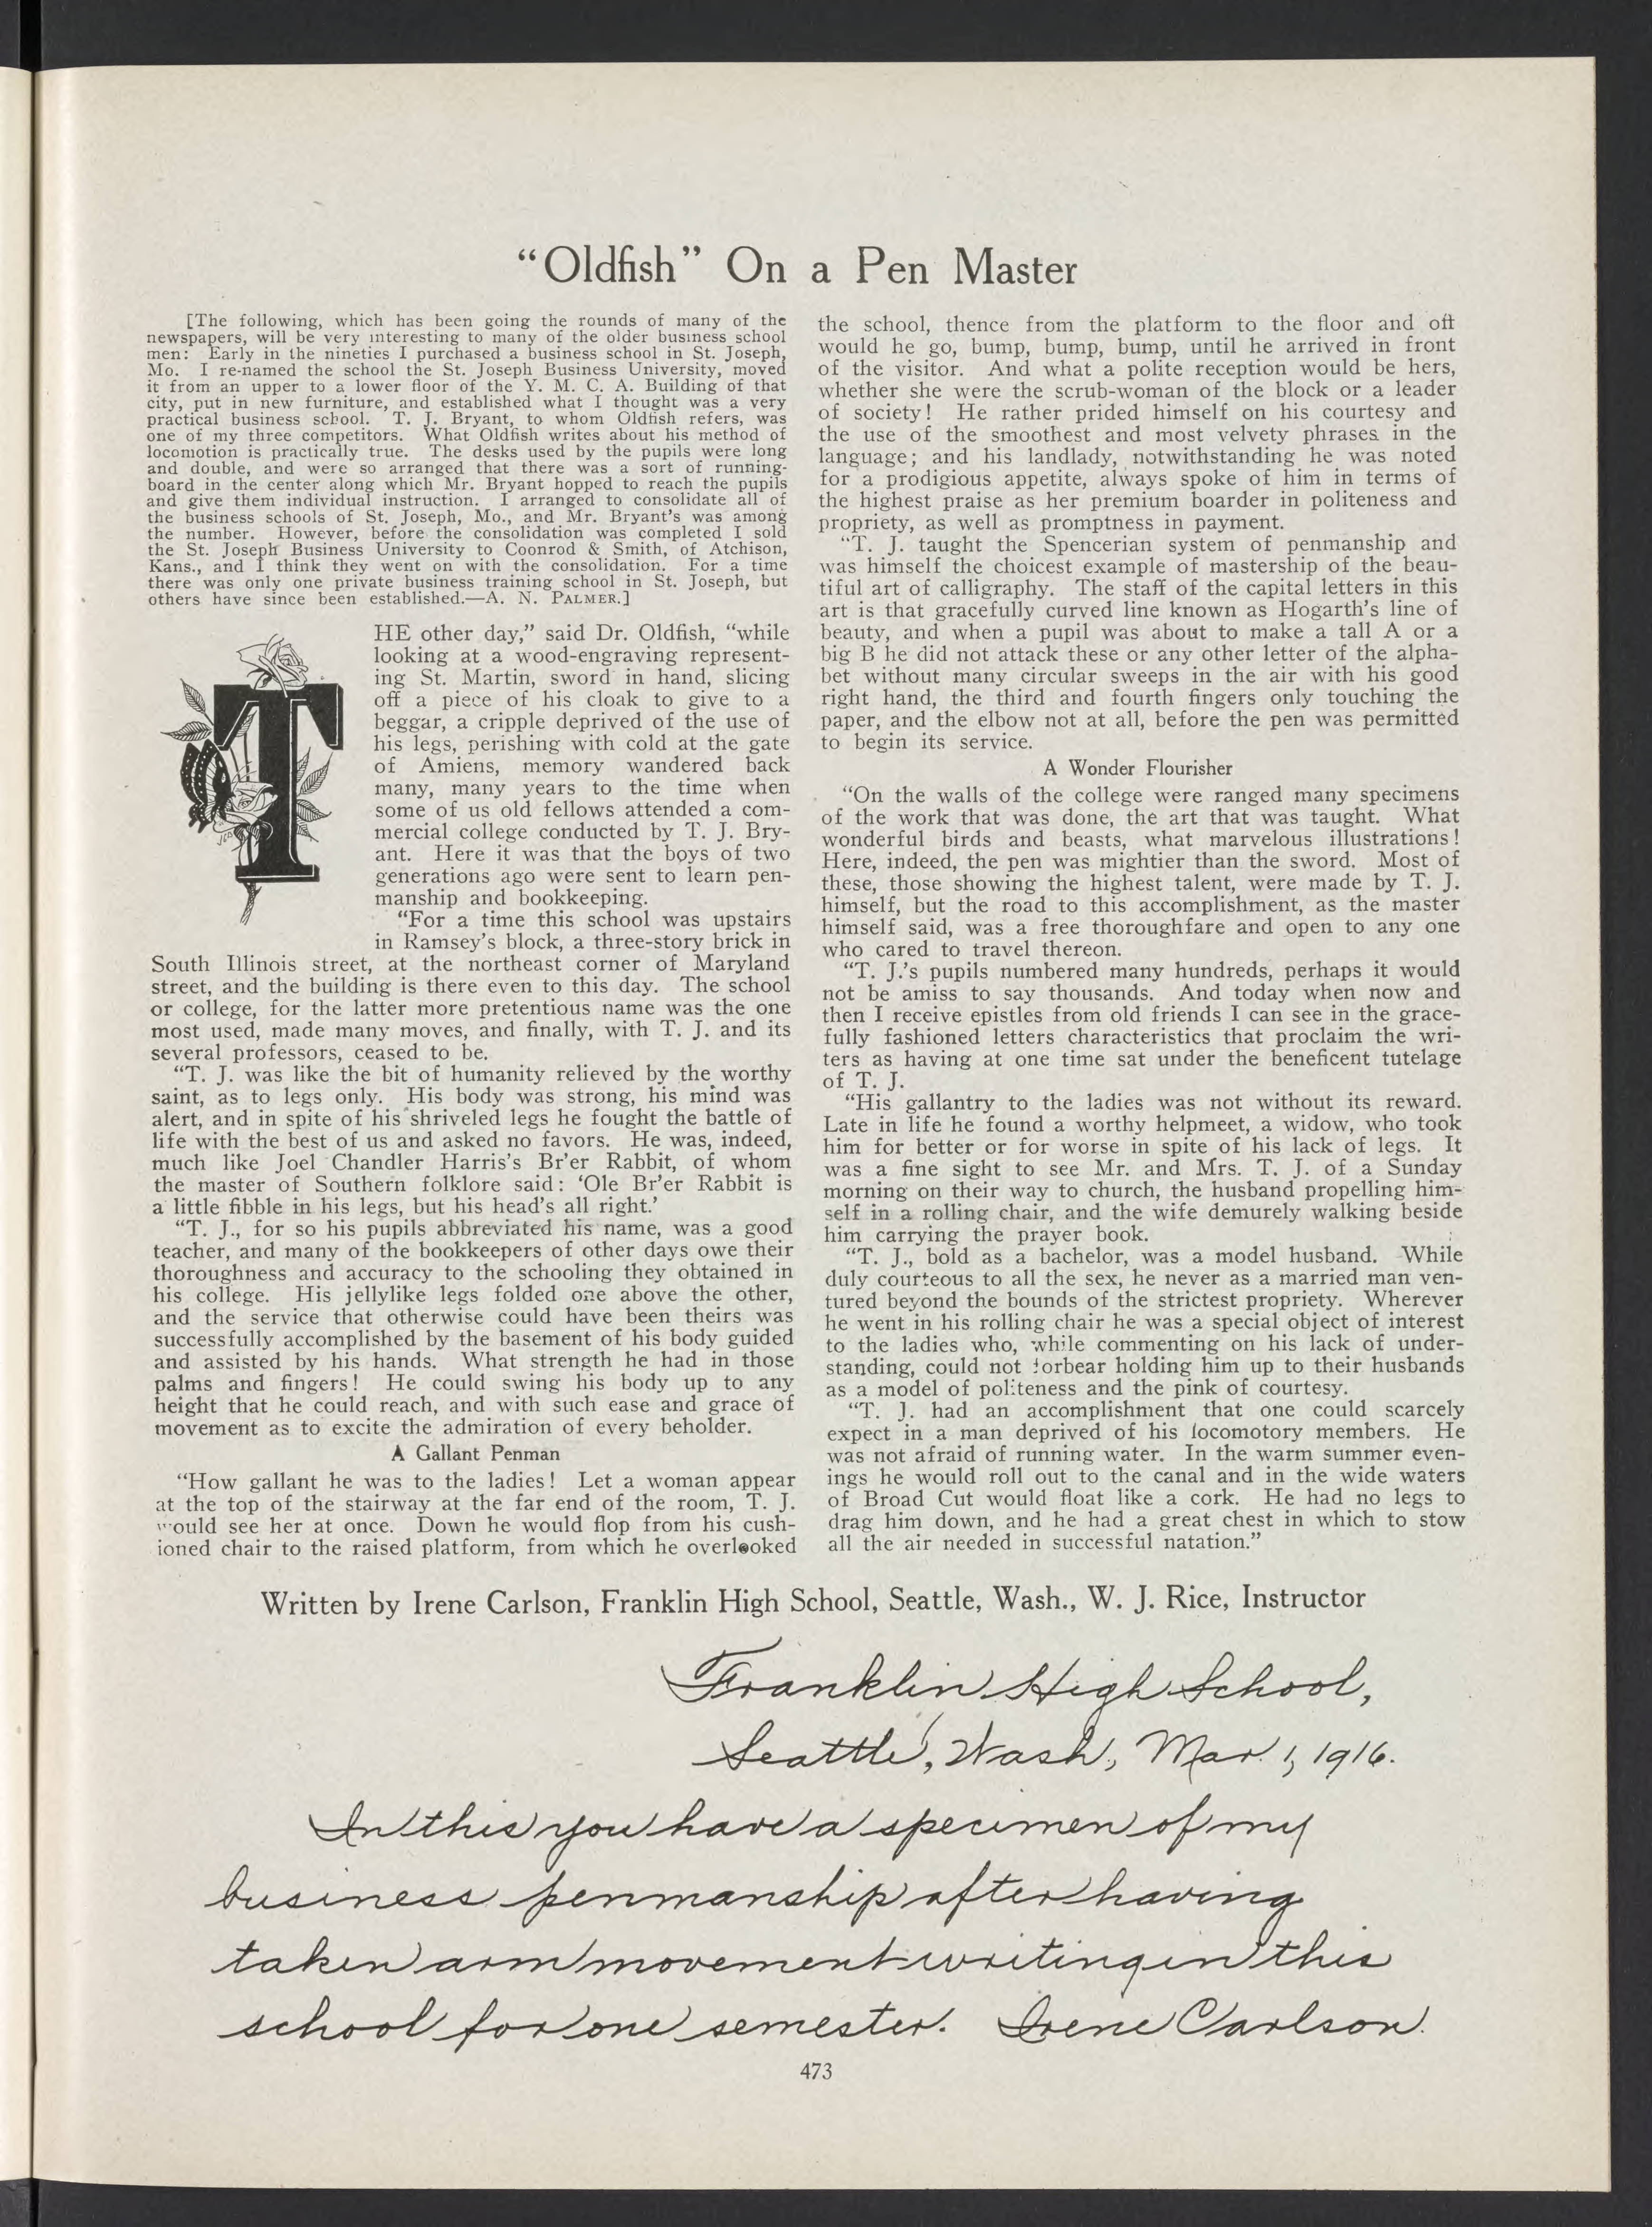 “Oldfish” On a Pen Master
[The following, which has been going the rounds of many of the
newspapers, will be very interesting to many of the older business school
men: Early in the nineties I purchased a business school in St. Joseph,
Mo. I re-named the school the St. Joseph Business University, moved
it from an upper to a lower floor of the Y. M. C. A. Building of that
city, put in new furniture, and established what I thought was a very
practical business school. T. J. Bryant, to whom Oldfish refers, was
one of my three competitors. What Oldfish writes about his method of
locomotion is practically true. The desks used by the pupils were long
and double, and were so arranged that there was a sort of running-
board in the center along which Mr. Bryant hopped to reach the pupils
and give them individual instruction. I arranged to consolidate all of
the business schools of St. Joseph, Mo., and Mr. Bryant's was among
the number. However, before the consolidation was completed I sold
the St. Joseph Business University to Coonrod & Smith, of Atchison,
Kans., and I think they went on with the consolidation. For a time
there was only one private business training school in St. Joseph, but
others have since been established.—A. N. PALMER.]
THE other day,” said Dr. Oldfish, “while
looking at a wood-engraving represent-
ing St. Martin, sword in hand, slicing
off a piece of his cloak to give to a
beggar, a cripple deprived of the use of
his legs, perishing with cold at the gate
of Amiens, memory wandered back
many, many years to the time when
some of us old fellows attended a com-
mercial college conducted by T. J. Bry-
ant. Here it was that the boys of two
generations ago were sent to learn pen-
manship and bookkeeping.
“For a time this school was upstairs
in Ramsey's block, a three-story brick in
South Illinois street, at the northeast corner of Maryland
street, and the building is there even to this day. The school
or college, for the latter more pretentious name was the one
most used, made many moves, and finally, with T. J. and its
several professors, ceased to be.
“T. J. was like the bit of humanity relieved by the worthy
saint, as to legs only. His body was strong, his mind was
alert, and in spite of his shriveled legs he fought the battle of
life with the best of us and asked no favors. He was, indeed,
much like Joel Chandler Harris's Br'er Rabbit, of whom
the master of Southern folklore said: ‘Ole Br'er Rabbit is
a little fibble in his legs, but his head's all right.’
“T. J., for so his pupils abbreviated his name, was a good
teacher, and many of the bookkeepers of other days owe their
thoroughness and accuracy to the schooling they obtained in
his college. His jellylike legs folded one above the other,
and the service that otherwise could have been theirs was
successfully accomplished by the basement of his body guided
and assisted by his hands. What strength he had in those
palms and fingers! He could swing his body up to any
height that he could reach, and with such ease and grace of
movement as to excite the admiration of every beholder.
A Gallant Penman
“How gallant he was to the ladies! Let a woman appear
at the top of the stairway at the far end of the room, T. J.
would see her at once. Down he would flop from his cush-
ioned chair to the raised platform, from which he overlooked
the school, thence from the platform to the floor and off
would he go, bump, bump, bump, until he arrived in front
of the visitor. And what a polite reception would be hers,
whether she were the scrub-woman of the block or a leader
of society! He rather prided himself on his courtesy and
the use of the smoothest and most velvety phrases in the
language; and his landlady, notwithstanding he was noted
for a prodigious appetite, always spoke of him in terms of
the highest praise as her premium boarder in politeness and
propriety, as well as promptness in payment.
“T. J. taught the Spencerian system of penmanship and
was himself the choicest example of mastership of the beau-
tiful art of calligraphy. The staff of the capital letters in this
art is that gracefully curved line known as Hogarth's line of
beauty, and when a pupil was about to make a tall A or a
big B he did not attack these or any other letter of the alpha-
bet without many circular sweeps in the air with his good
right hand, the third and fourth fingers only touching the
paper, and the elbow not at all, before the pen was permitted
to begin its service.
A Wonder Flourisher
“On the walls of the college were ranged many specimens
of the work that was done, the art that was taught. What
wonderful birds and beasts, what marvelous illustrations!
Here, indeed, the pen was mightier than the sword. Most of
these, those showing the highest talent, were made by T. J.
himself, but the road to this accomplishment, as the master
himself said, was a free thoroughfare and open to any one
who cared to travel thereon.
“T. J.'s pupils numbered many hundreds, perhaps it would
not be amiss to say thousands. And today when now and
then I receive epistles from old friends I can see in the grace-
fully fashioned letters characteristics that proclaim the wri-
ters as having at one time sat under the beneficent tutelage
of T. J.
“His gallantry to the ladies was not without its reward.
Late in life he found a worthy helpmeet, a widow, who took
him for better or for worse in spite of his lack of legs. It
was a fine sight to see Mr. and Mrs. T. J. of a Sunday
morning on their way to church, the husband propelling him-
self in a rolling chair, and the wife demurely walking beside
him carrying the prayer book.
“T. J., bold as a bachelor, was a model husband. While
duly courteous to all the sex, he never as a married man ven-
tured beyond the bounds of the strictest propriety. Wherever
he went in his rolling chair he was a special object of interest
to the ladies who, while commenting on his lack of under-
standing, could not forbear holding him up to their husbands
as a model of politeness and the pink of courtesy.
“T. J. had an accomplishment that one could scarcely
expect in a man deprived of his locomotory members. He
was not afraid of running water. In the warm summer even-
ings he would roll out to the canal and in the wide waters
of Broad Cut would float like a cork. He had no legs to
drag him down, and he had a great chest in which to stow
all the air needed in successful natation.”
Written by Irene Carlson, Franklin High School, Seattle, Wash., W. J. Rice, Instructor
Franklin High School,
Seattle, Wash., Mar. 1, 1916.
In this you have a specimen of my
business penmanship after having
taken arm movement writing in this
school for one semester. Irene Carlson.
473